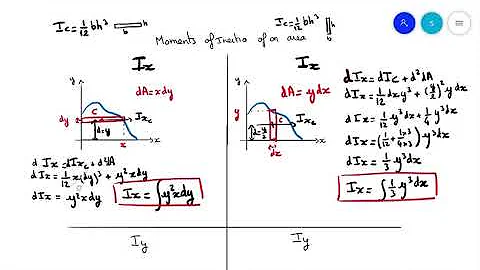 Ic=1/12 bh³ h b
Ic=1/12 bh³ h b
Moments of Inertia of an area
Ix
y
dA=xdy
c
dy
Ixc
d=y
x
x
dIx=dIxc+d²dA
dIx=1/12 x(dy)³+y²xdy
dIx=y²xdy
Ix=∫y²xdy
Ix
y
dA=ydx
y
Ixc
d=y/2
x
dx
dIx=dIc+d²dA
dIx=1/12 dxy³+(y/2)²ydx
dIx=1/12 y³dx+1/4 y³dx
dIx=(1/12+1×3/4×3)y³dx
dIx=1/3 y³dx
Ix=∫1/3 y³dx
Iy
Iy
S